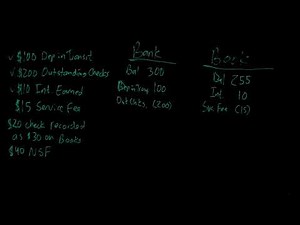 ✓ $100 Dep in Transit
✓ $200 Outstanding Checks
✓ $10 Int. Earned
$15 Service Fee
$20 check recorded
as $30 on
Books
$40 NSF
Bank
Bal 300
Dep in Trans 100
Out Chks. (200)
Book
Bal 255
Int. 10
Svc Fee (15)